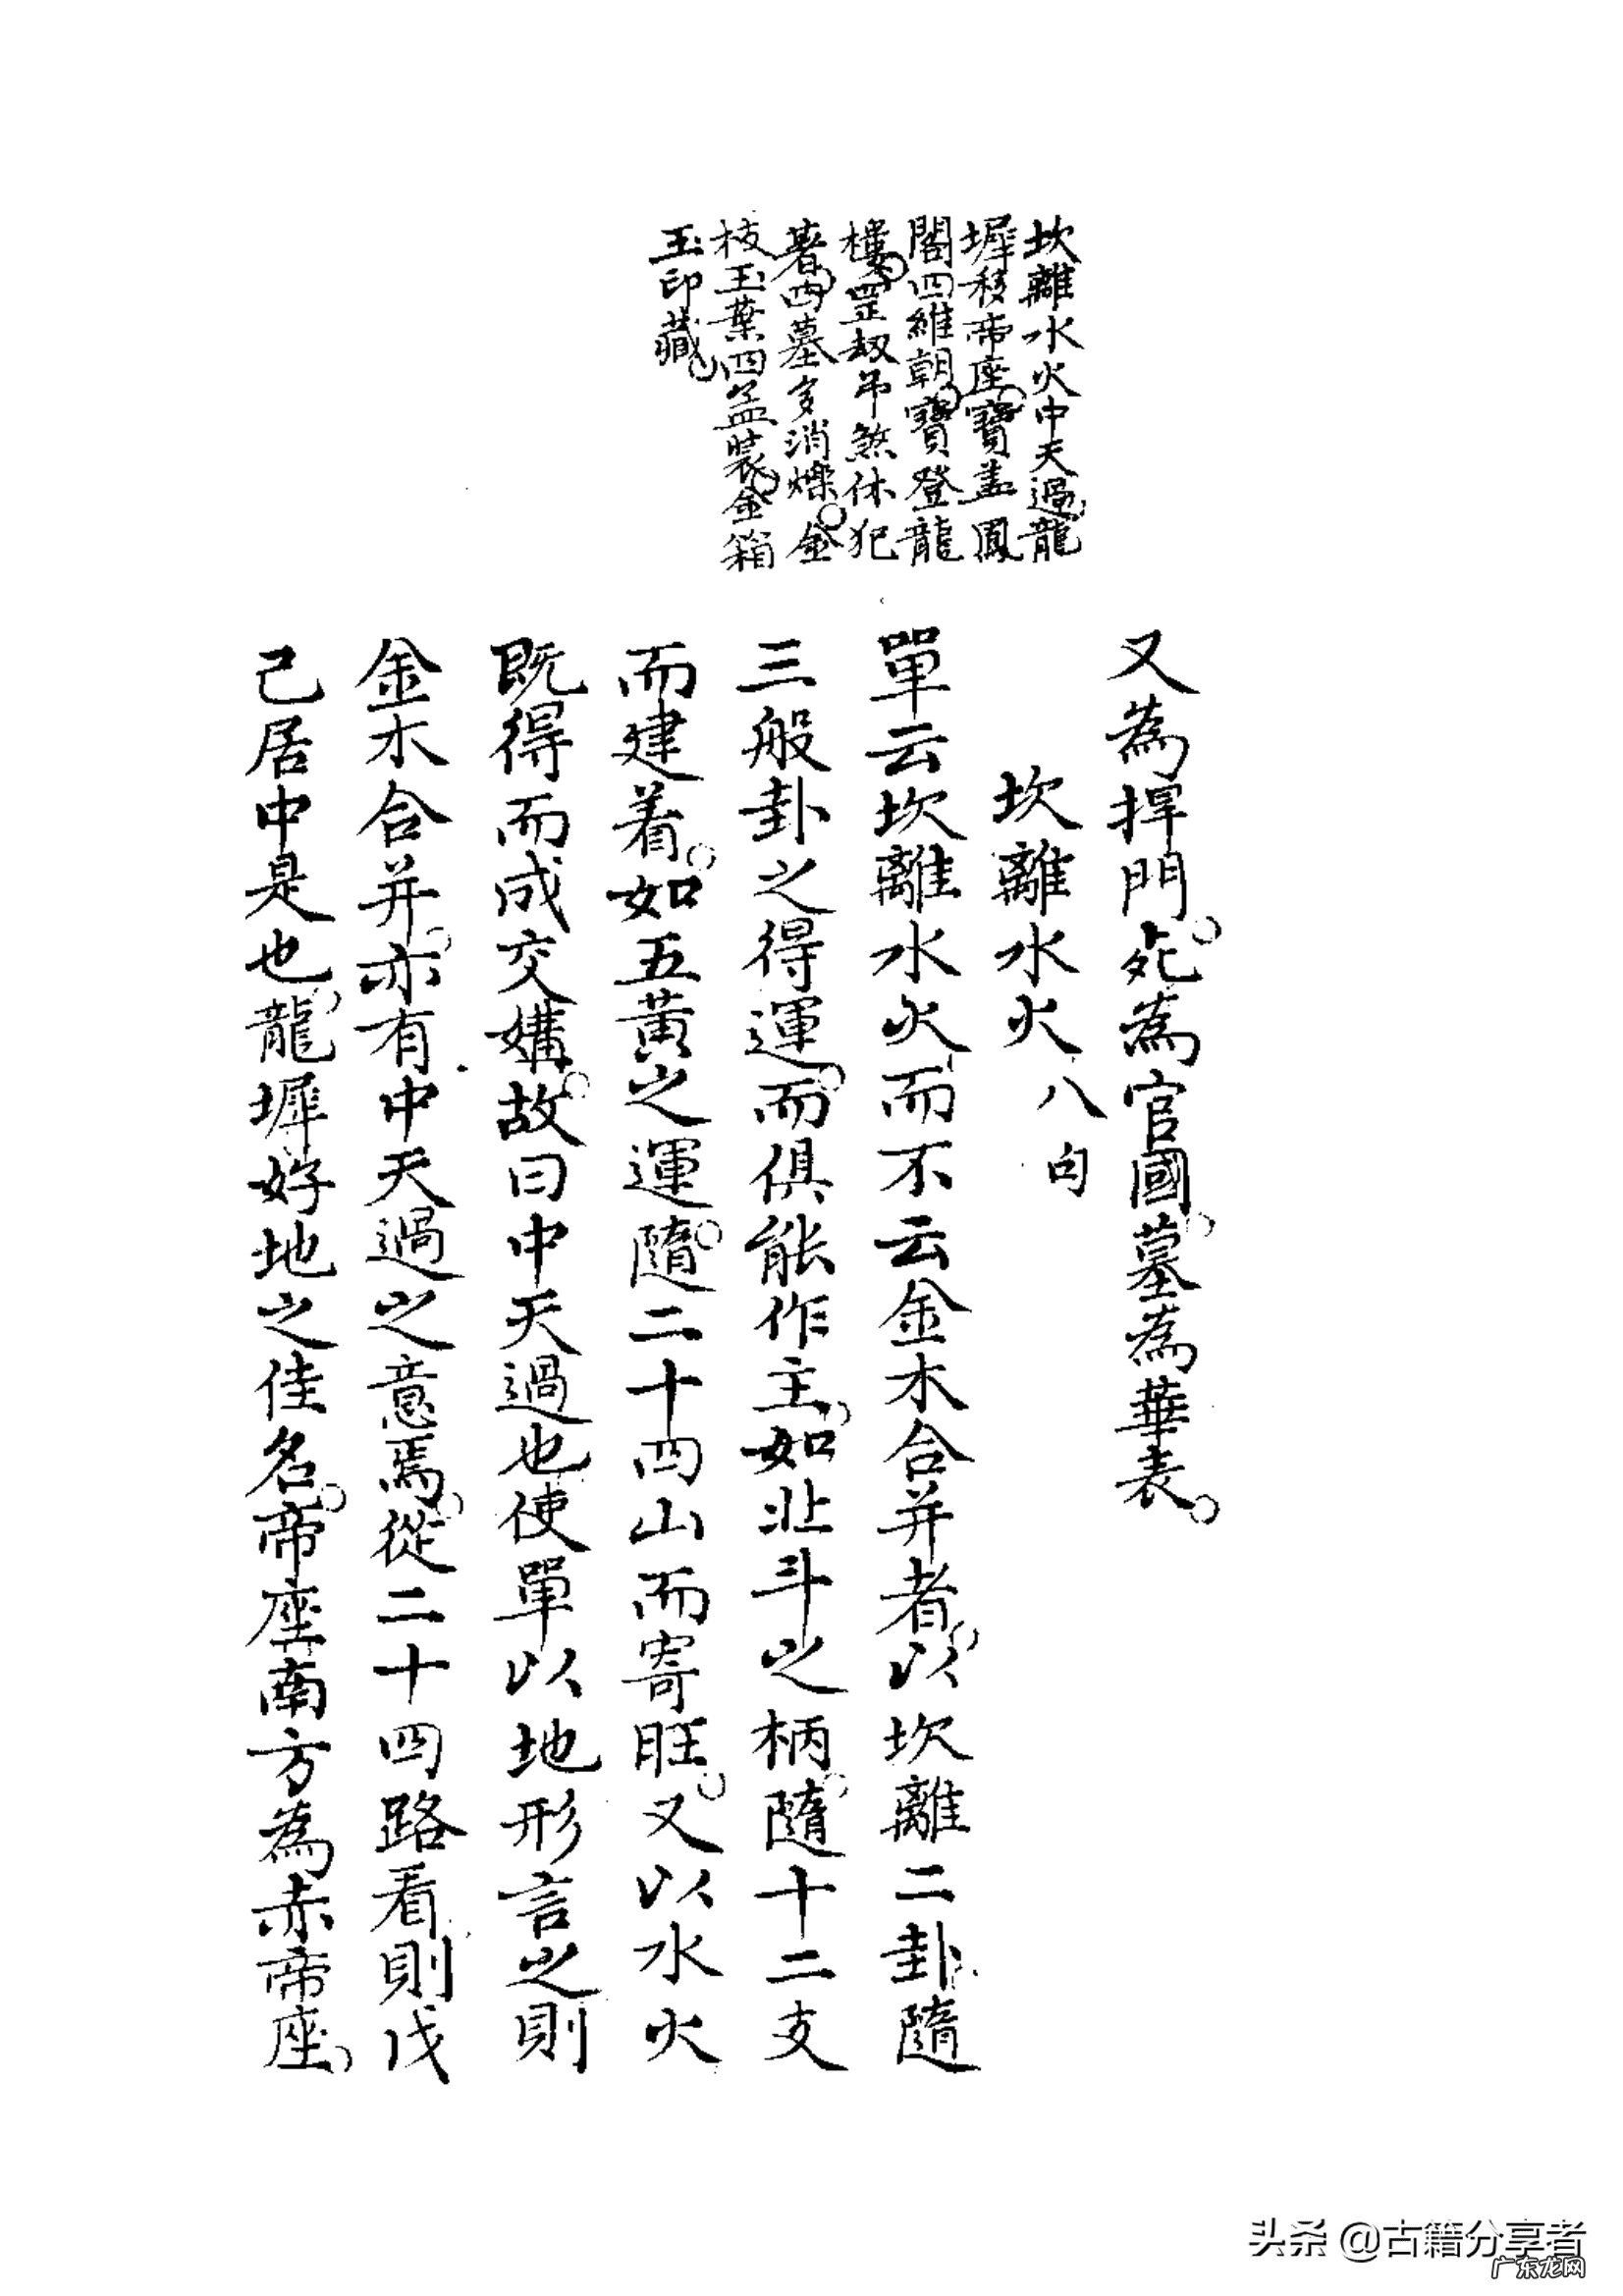 坎離水火中天過龍
墀移帝座寶盖鳳
閣四維朝寶登龍
樓罡刼弔煞休犯
著四墓多消爍金
枝玉葉四孟裝金箱
玉印藏
又為捍門死為官國墓為華表
坎離水火八句
單云坎離水火而不云金木合并者以坎離二卦隨
三般卦之得運而俱能作主如北斗之柄隨十二支
而建着如五黃之運隨二十四山而寄旺又以水火
既得而成交媾故曰中天過也使單以地形言之則
金木合并亦有中天過之意焉從二十四路看則戊
己居中是也龍墀好地之佳名帝座南方為赤帝座
头条 @古籍分享者
广东龙网